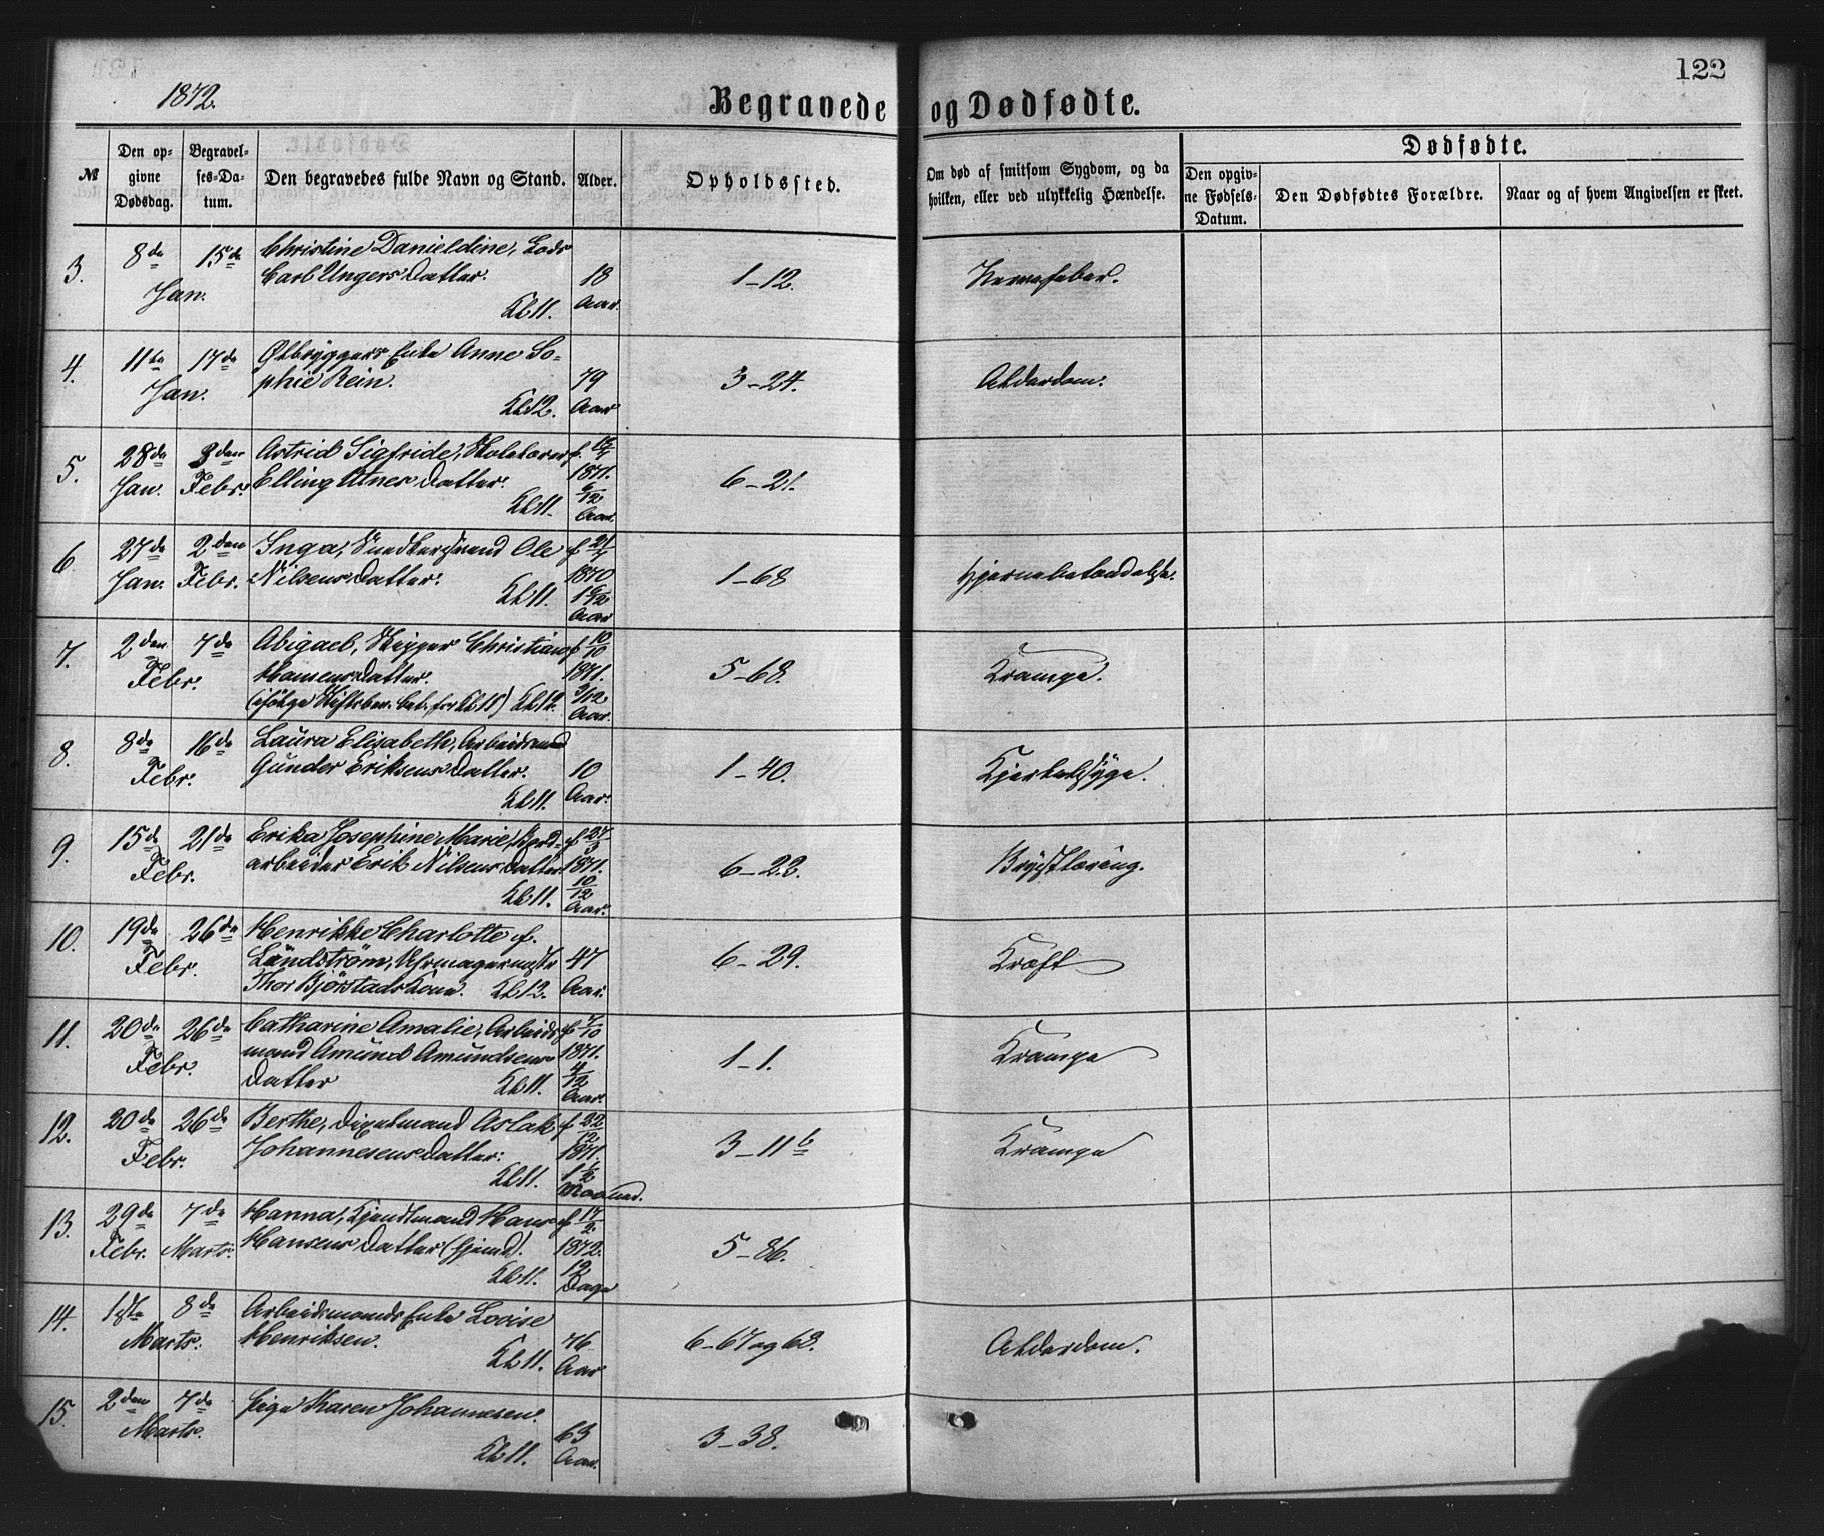 122
1872.
Begravede og Dødfødte.
№
Den opgivne Dødsdag.
Begravelses-Datum.
Den begravedes fulde Navn og Stand.
Alder.
Opholdssted.
Om død af smitsom Sygdom, og da hvilken, eller ved ulykkelig Hændelse.
Dødfødte.
Den opgivne Fødsels-Datum.
Den Dødfødtes Forældre.
Naar og af hvem Angivelsen er skeet.
3. 8de 15de Jan.
Christine Danieldine, Lods
Carl Ungers Datter.
Kl. 11.
18 Aar.
1-12.
Nervefeber.
4. 11te 17de Jan.
Ølbryggers Enke Anne So-
phie Rein.
Kl. 12.
79 Aar
3-24.
Alderdom.
5. 28de Jan. 3den Febr.
Astrid Sigfride, Skolelærer
Elling Utnes Datter.
Kl. 11.
1871.
Aar.
6-21.
6. 27de Jan. 2den Febr.
Inga, Ole
Nilsens Datter.
Kl. 11.
f 21/7 1870
1 6/12 Aar
1-68
Hjernebetændelse.
7. 2den 7de Febr.
Abigael, Skipper Christian
Hansens Datter.
(ifølge Skiftsber. bet. for Kl. 11) Kl. 12.
f 10/10 1871.
3/12 Aar.
5-68.
Krampe.
8. 8de 16de Febr.
Laura Elisabeth, Arbeidsmand
Gunder Eriksens Datter.
Kl. 11.
10 Aar.
1-40.
Kjertelsyge.
9. 15de 21de Febr.
Erika Josephine Marie, Jord-
arbeider Erik Nilsens Datter.
Kl. 11.
f 27/3 1871.
10/12 Aar.
6-22.
Brysttæring.
10. 19de 26de Febr.
Henrikke Charlotte f.
Lundstrøm, Uhrmagermestr
Thor Bjørstads Kone. Kl. 12.
47 Aar.
6-29.
Kræft
11. 20de 26de Febr.
Catharine Amalie, Arbeids-
mand Amund Amundsens
Datter Kl. 11.
f 7/10 1871.
4/12 Aar.
1-1.
Krampe
12. 20de 26de Febr.
Berthe, Aslak
Johannesens Datter.
Kl. 11.
f 22/12 1871.
1 1/2 Maaned.
3-11 b
Krampe
13. 29de Febr. 7de Marts.
Hanna, Hans
Hansens Datter
Kl. 11.
f 17/2 1872.
12 Dage
5-86.
14. 1ste 8de Marts.
Arbeidsmands Enke Lovise
Henriksen.
Kl. 11.
76 Aar
6-67 og 68.
Alderdom.
15. 2den 7de Marts.
Pige Karen Johannesen.
Kl. 11.
63 Aar.
3-38.